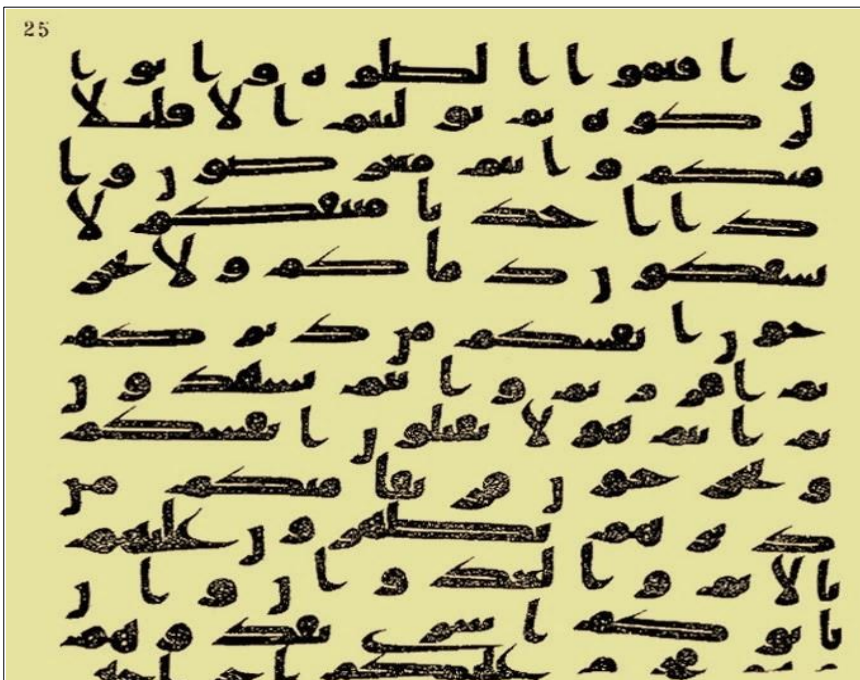 25
واقيموا الصلوه واتوا ا
لزكوه ثم توليتم الا قليلا
منكم وانتم معرضون وا
ذ اخذنا ميثقكم لا
تسفكون دماكم ولا تخر
جون انفسكم من دىركم
ثم اقررتم وانتم تشهدون
ثم انتم هولا تقتلون انفسكم
وتخرجون فريقا منكم من
ديرهم تظهرون عليهم
بالاثم والعدون وان يا
توكم اسرى تفدوهم